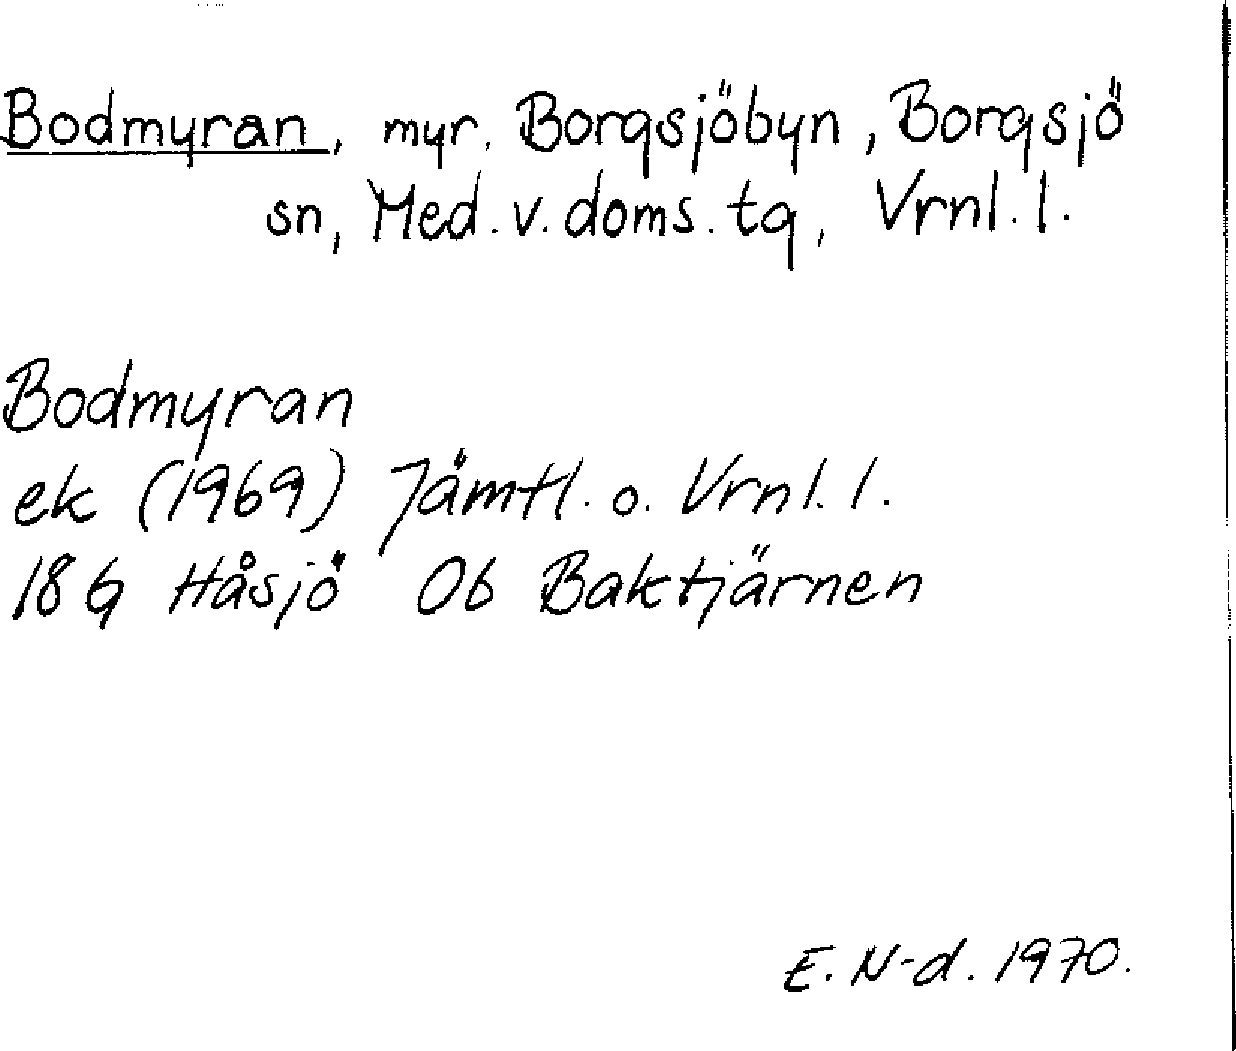 Bodmyran, myr, Borgsjöbyn, Borgsjö
sn, Med. v. doms. tg, Vrnl. l.
Bodmyran
ek (1969) Jämtl. o. Vrnl. l.
18 G Håsjö Ob Baktjärnen
E. N-d. 1970.